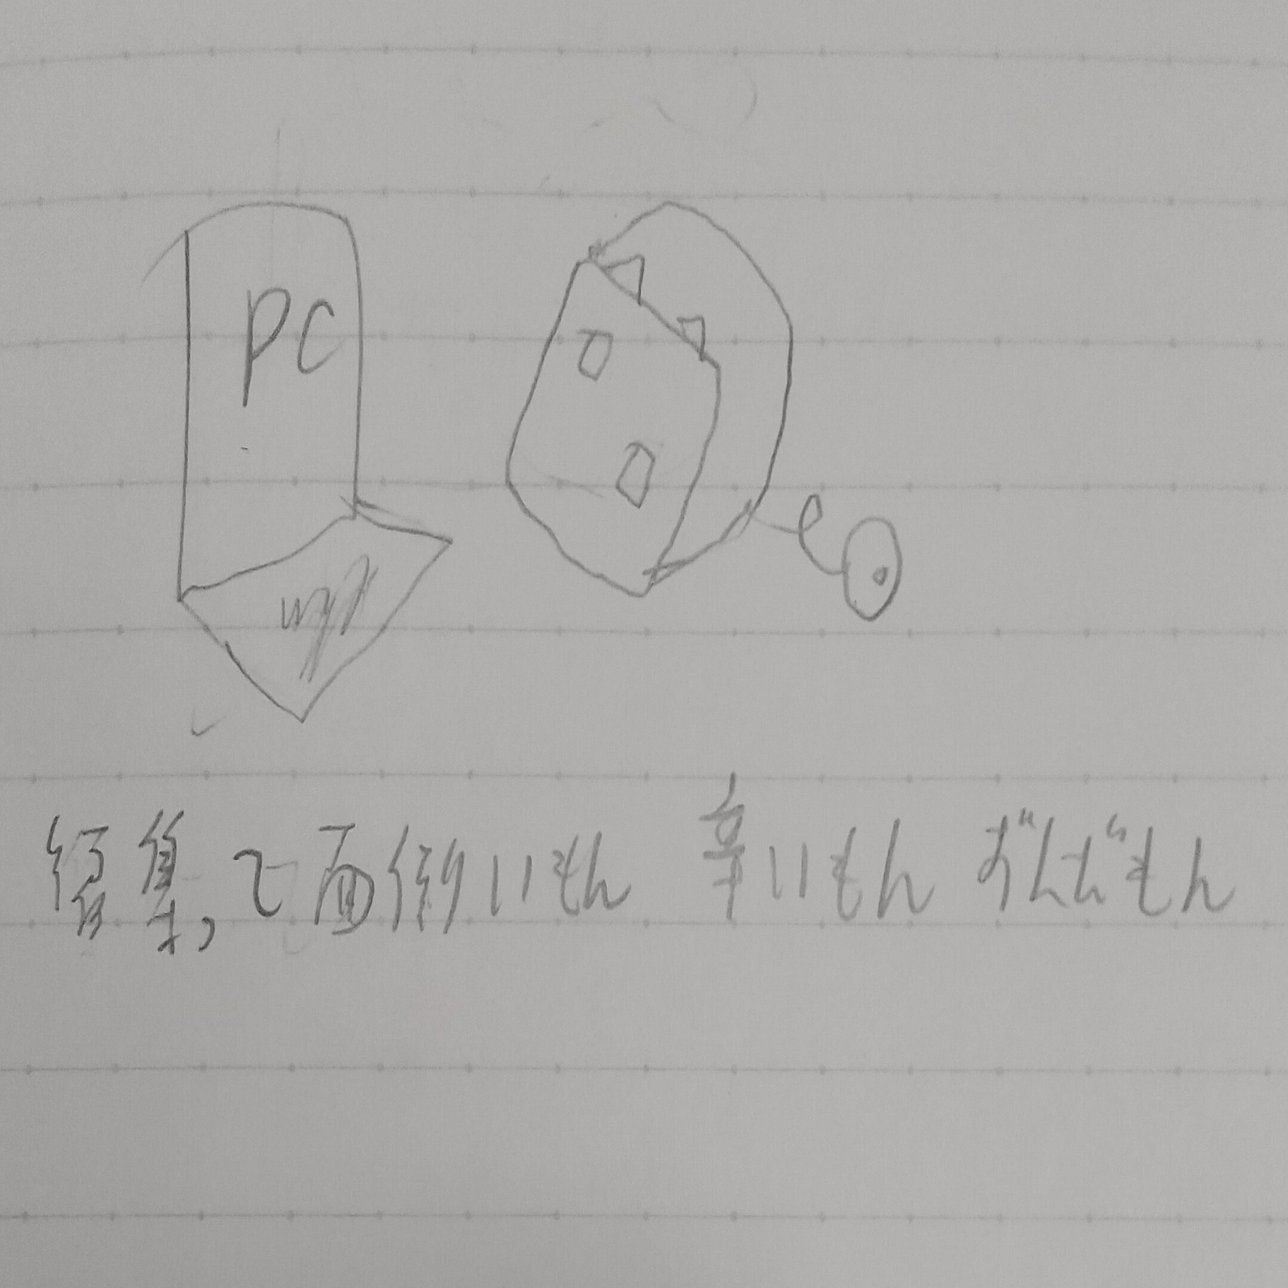 PC
編集って面倒いもん 辛いもん ずんだもん